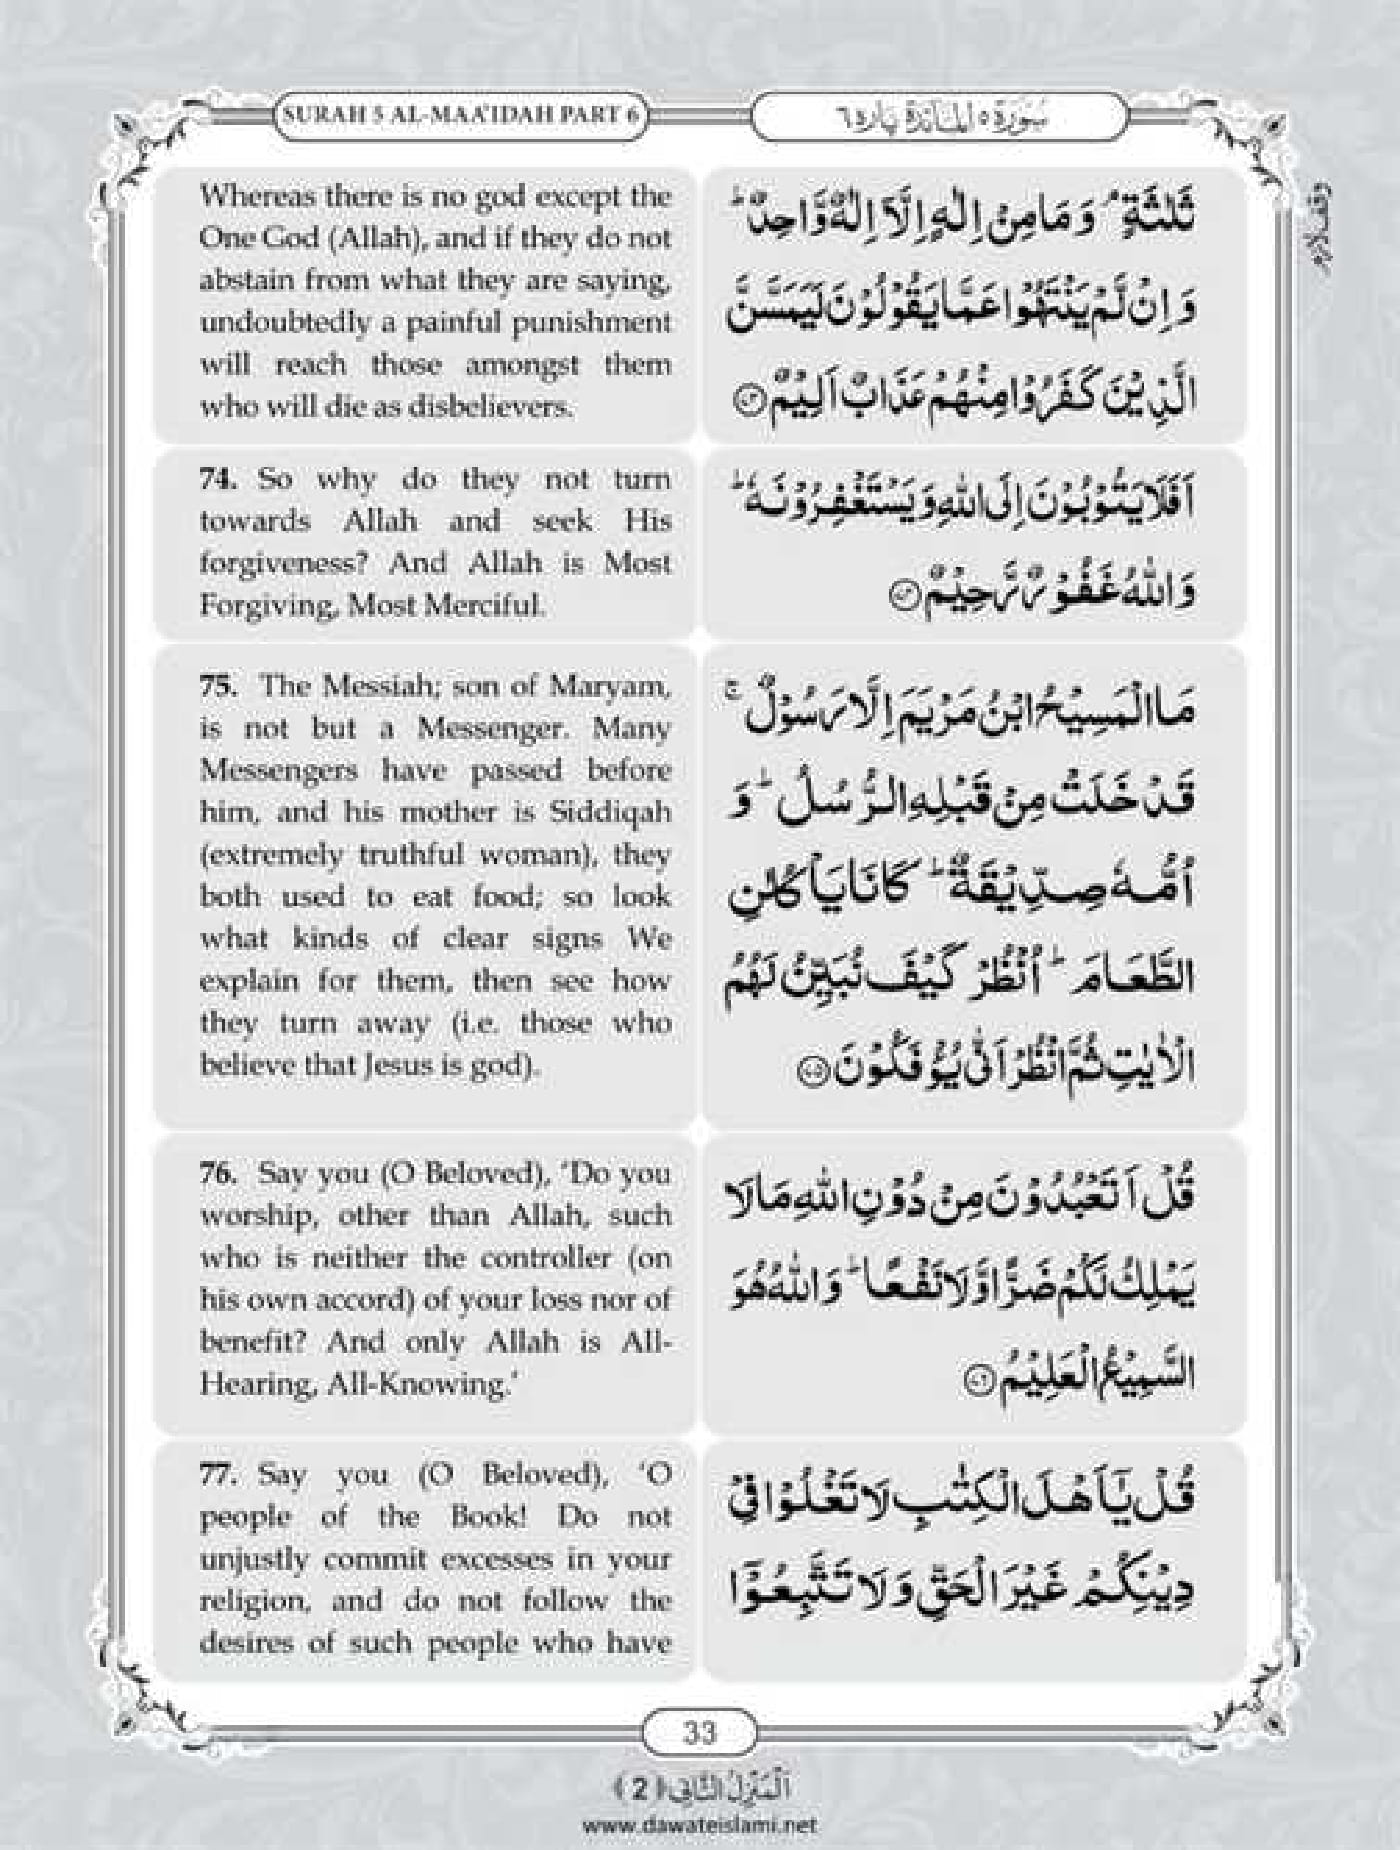 SURAH 5 AL-MAA'IDAH PART 6
سُوْرَة ٥ اَلْمَآئِدَة پارہ ٦
وقف لازم
Whereas there is no god except the
One God (Allah), and if they do not
abstain from what they are saying,
undoubtedly a painful punishment
will reach those amongst them
who will die as disbelievers.
ثَلٰثَةٍ ۘ وَمَا مِنْ اِلٰهٍ اِلَّاۤ اِلٰهٌ وَّاحِدٌ ؕ
وَ اِنْ لَّمْ یَنْتَهُوْا عَمَّا یَقُوْلُوْنَ لَیَمَسَّنَّ
الَّذِیْنَ كَفَرُوْا مِنْهُمْ عَذَابٌ اَلِیْمٌ ﴿۷۳﴾
74. So why do they not turn
towards Allah and seek His
forgiveness? And Allah is Most
Forgiving, Most Merciful.
اَفَلَا یَتُوْبُوْنَ اِلَی اللّٰهِ وَ یَسْتَغْفِرُوْنَهٗ ؕ
وَ اللّٰهُ غَفُوْرٌ رَّحِیْمٌ ﴿۷۴﴾
75. The Messiah; son of Maryam,
is not but a Messenger. Many
Messengers have passed before
him, and his mother is Siddiqah
(extremely truthful woman), they
both used to eat food; so look
what kinds of clear signs We
explain for them, then see how
they turn away (i.e. those who
believe that Jesus is god).
مَا الْمَسِیْحُ ابْنُ مَرْیَمَ اِلَّا رَسُوْلٌ ۚ
قَدْ خَلَتْ مِنْ قَبْلِهِ الرُّسُلُ ؕ وَ
اُمُّهٗ صِدِّیْقَةٌ ؕ كَانَا یَاْكُلٰنِ
الطَّعَامَ ؕ اُنْظُرْ كَیْفَ نُبَیِّنُ لَهُمُ
الْاٰیٰتِ ثُمَّ انْظُرْ اَنّٰی یُؤْفَكُوْنَ ﴿۷۵﴾
76. Say you (O Beloved), ‘Do you
worship, other than Allah, such
who is neither the controller (on
his own accord) of your loss nor of
benefit? And only Allah is All-
Hearing, All-Knowing.’
قُلْ اَتَعْبُدُوْنَ مِنْ دُوْنِ اللّٰهِ مَا لَا
یَمْلِكُ لَكُمْ ضَرًّا وَّ لَا نَفْعًا ؕ وَ اللّٰهُ هُوَ
السَّمِیْعُ الْعَلِیْمُ ﴿۷۶﴾
77. Say you (O Beloved), ‘O
people of the Book! Do not
unjustly commit excesses in your
religion, and do not follow the
desires of such people who have
قُلْ یٰۤاَهْلَ الْكِتٰبِ لَا تَغْلُوْا فِیْ
دِیْنِكُمْ غَیْرَ الْحَقِّ وَ لَا تَتَّبِعُوْۤا
33
اَلْمَنْزِلُ الثَّانِی ﴿2﴾
www.dawateislami.net